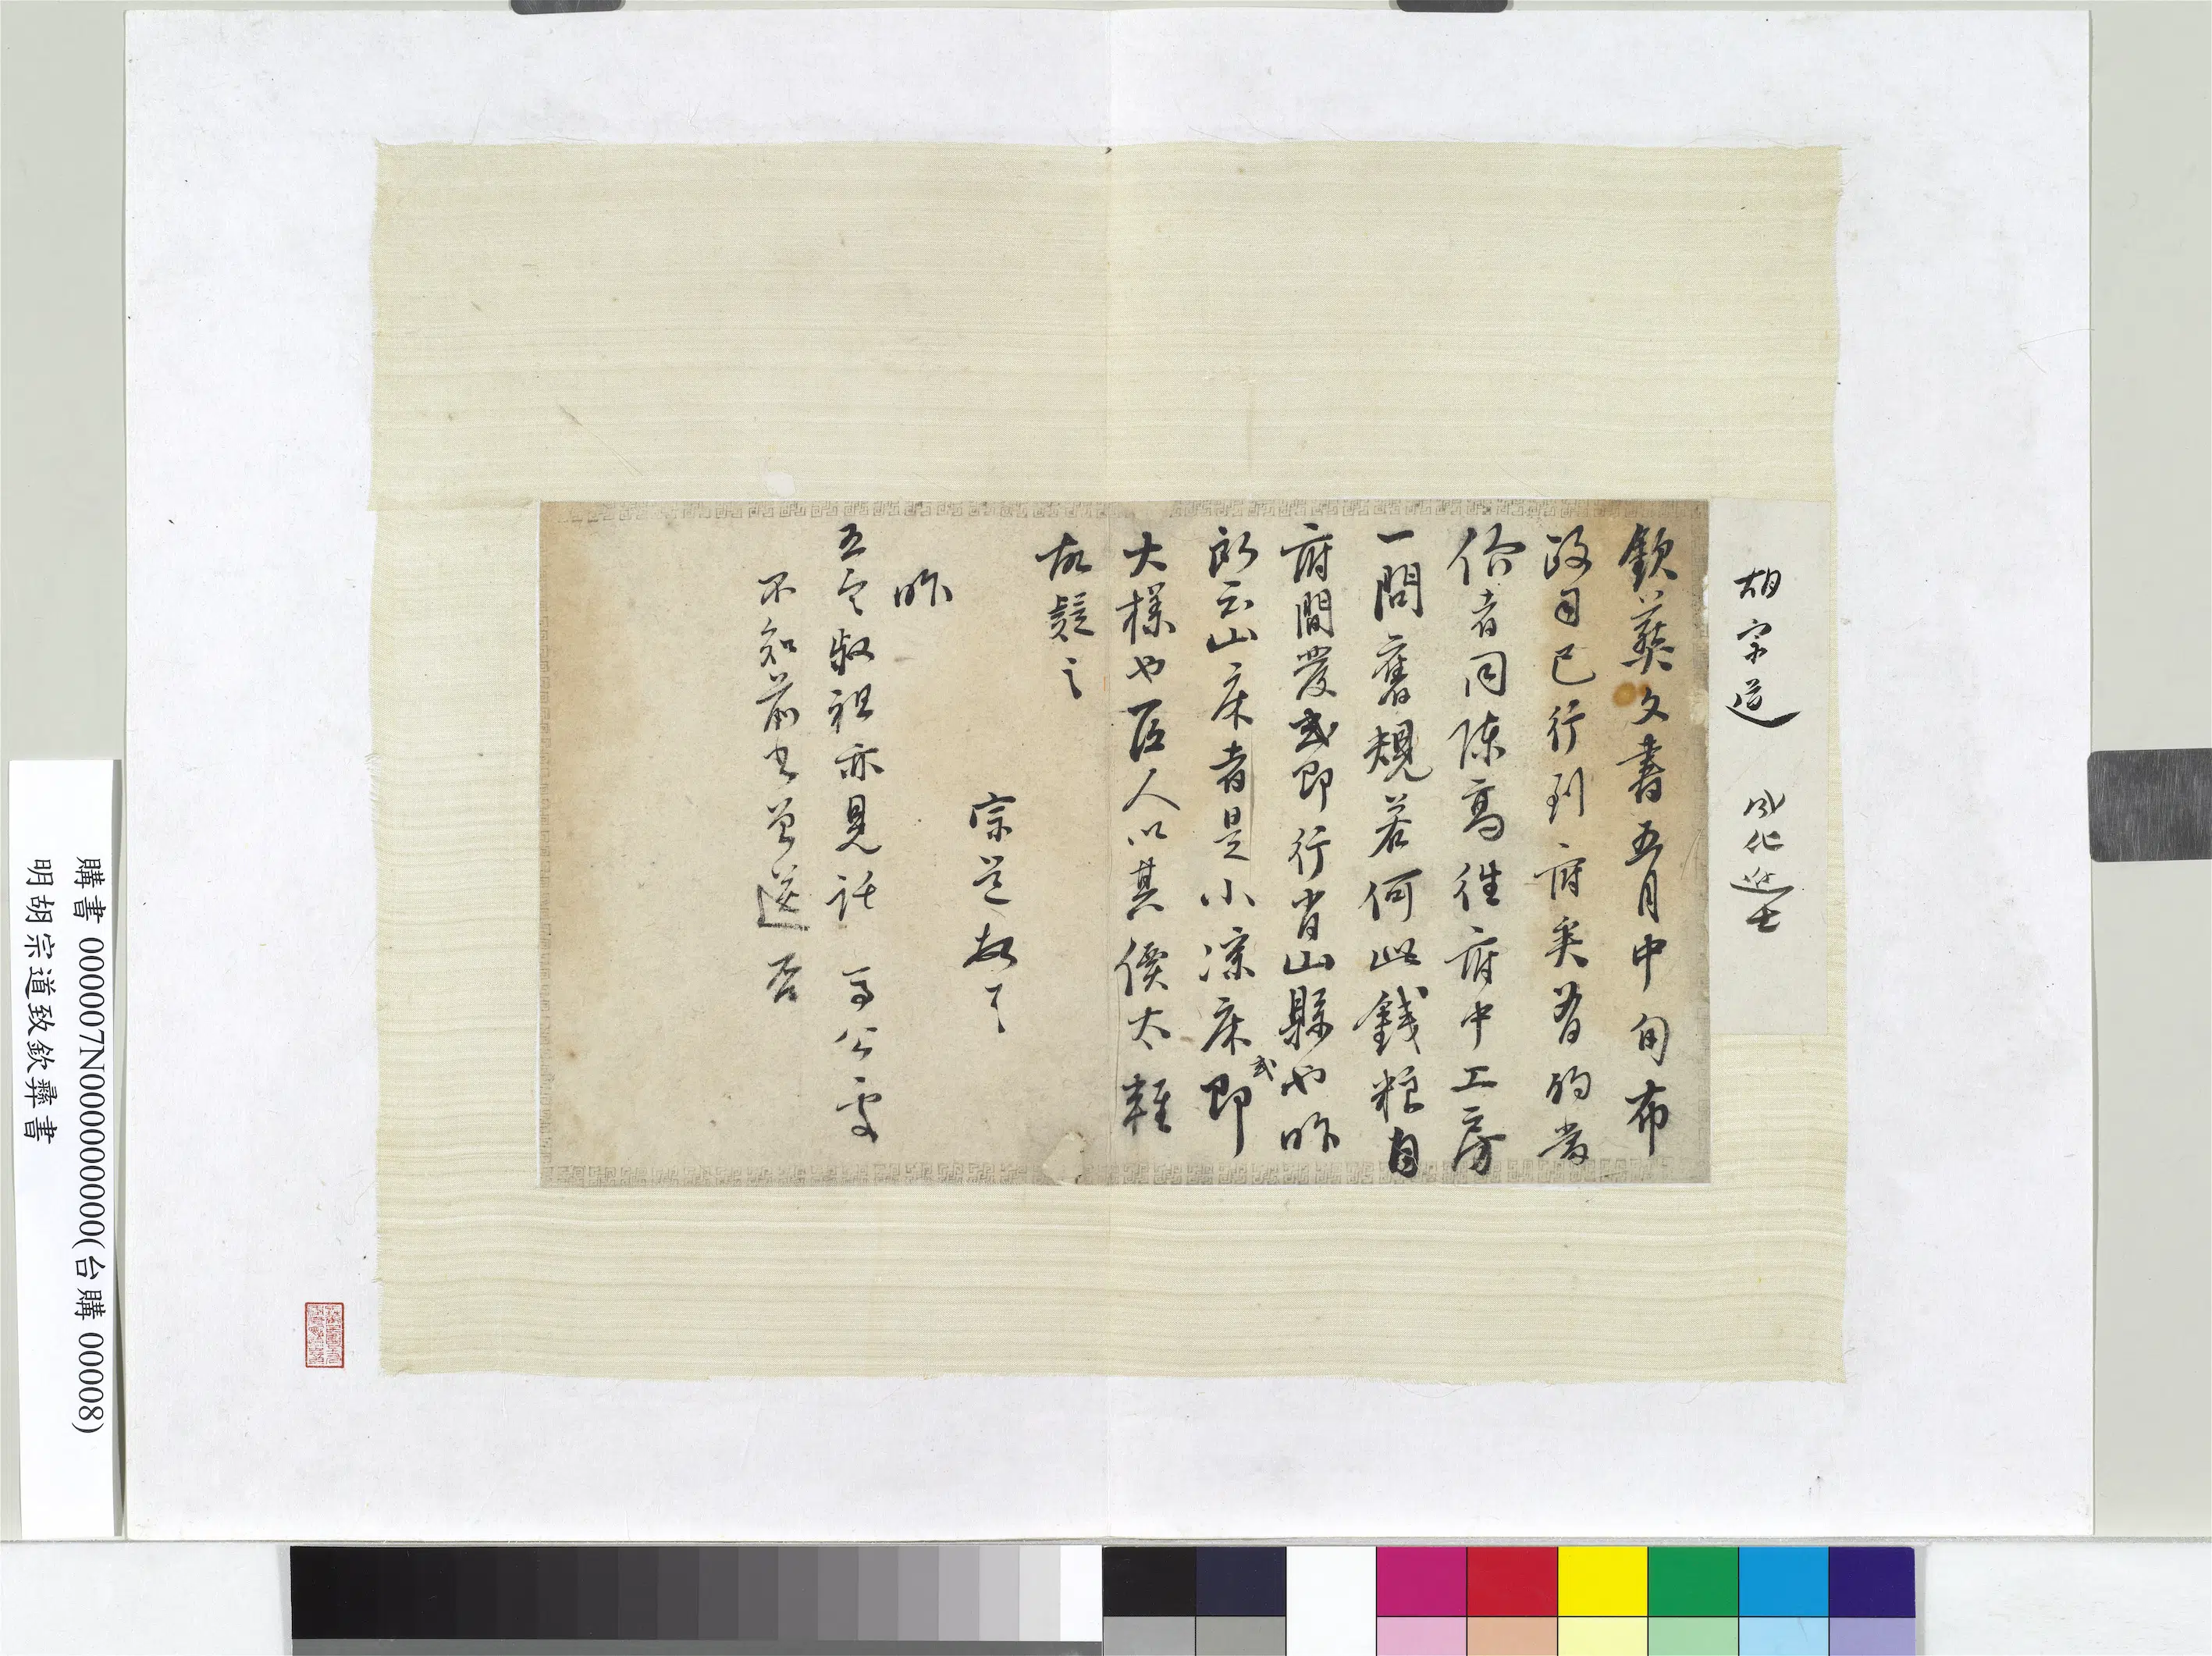 胡宗道 成化進士
欽彝文書五月中旬布
政司已行到府矣若的當
价者同陳髙往府中工房
一問舊規若何此錢粮自
府間發或即行肖山縣也昨
所云山床者是小涼床或即
大樣也匠人以其價太輕
故疑之
宗道頓首
昨
五叔祖亦見託 馬公處
不知前書曾送否
購書 000007N000000000(台購 00008)
明胡宗道致欽彝書